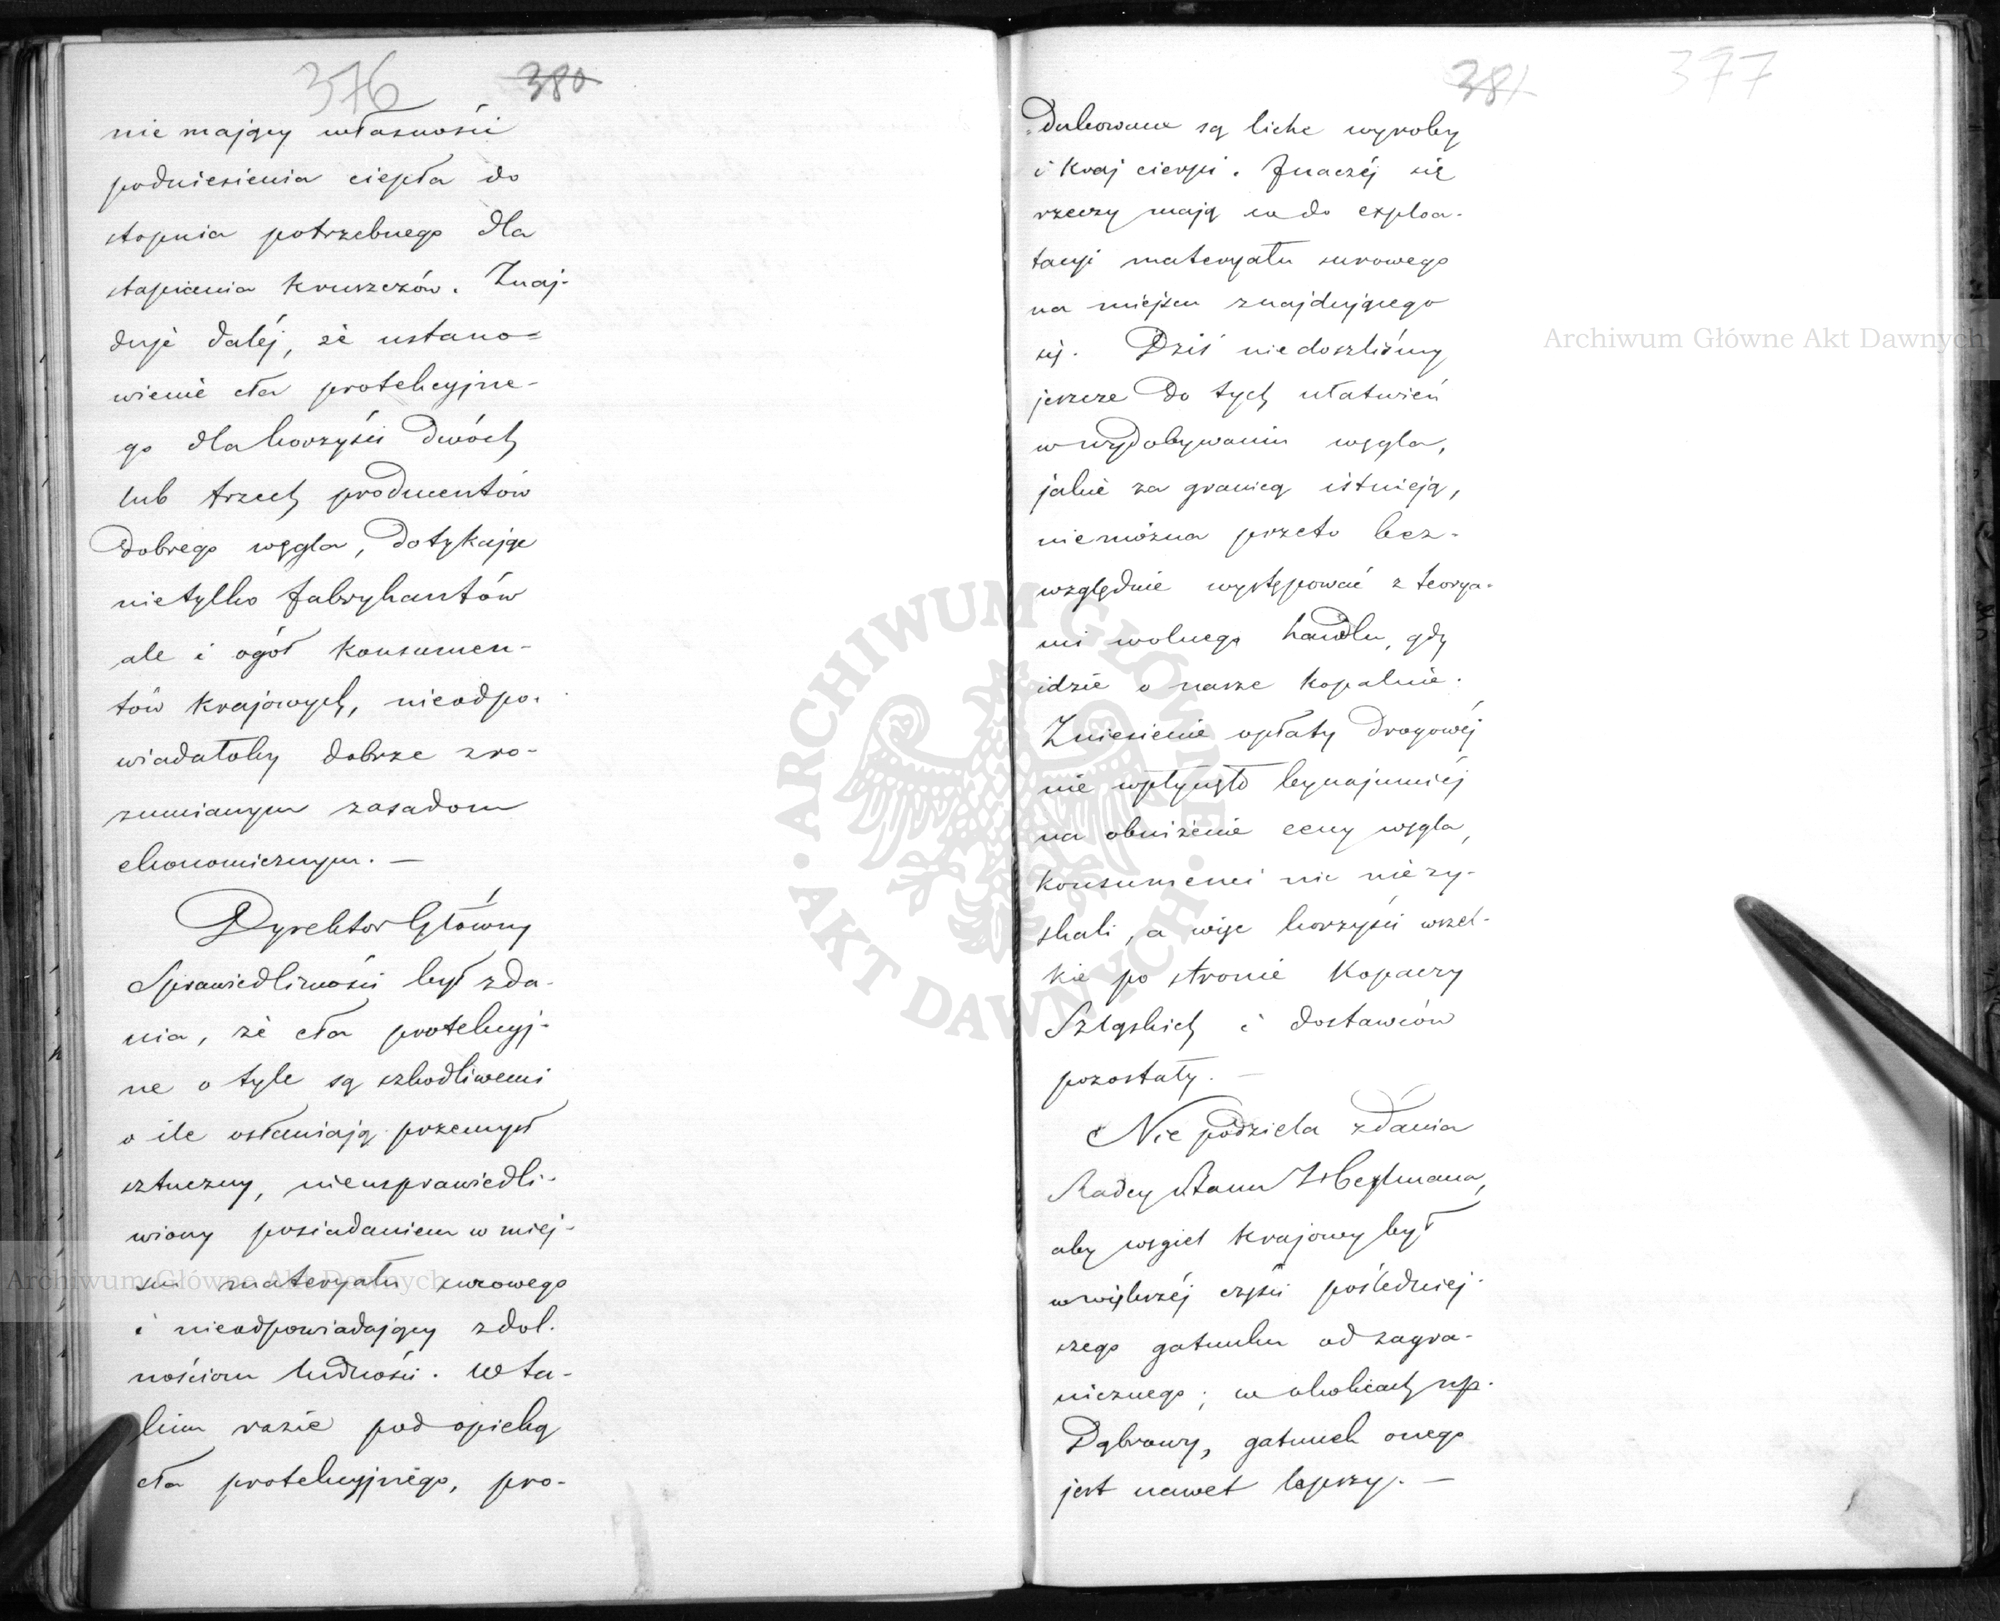 376 380
nie mający własności
podniesienia ciepła do
stopnia potrzebnego dla
stapiania kruszczów. Znaj-
duje daléj, że ustano=
wienie cła protekcyjne-
go dla korzyści dwóch
lub trzech producentów
dobrego węgla, dotykając
nietylko fabrykantów
ale i ogół konsumen-
tów krajowych, nieodpo-
wiadałoby dobrze zro-
zumianym zasadom
ekonomicznym. —
Dyrektor Główny
Sprawiedliwości był zda-
nia, że cła protekcyj-
ne o tyle są szkodliwemi
o ile osłaniają przemysł
sztuczny, nieusprawiedli-
wiony posiadaniem w miej-
scu materyału surowego
i nieodpowiadający zdol-
nościom ludności. W ta-
kim razie pod opieką
cła protekcyjnego, pro-
381 377
dukowane są liche wyroby
i kraj cierpi. Inaczéj się
rzeczy mają co do exploa-
tacyi materyału surowego
na miejscu znajdującego
się. Dziś niedoszliśmy
jeszcze do tych ułatwień
w wydobywaniu węgla,
jakie za granicą istnieją,
niemożna przeto bez-
względnie występować z teorya-
mi wolnego handlu, gdy
idzie o nasze kopalnie.
Zniesienie opłaty drogowéj
nie wpłynęło bynajmniéj
na obniżenie ceny węgla,
konsumenci nic nie zy-
skali, a więc korzyści wszel-
kie po stronie kopaczy
Szląskich i dostawców
pozostały. —
Nie podziela zdania
Radcy Stanu Heylmana,
aby węgiel krajowy był
w większéj części pośledniej-
szego gatunku od zagra-
nicznego; w okolicach np.
Dąbrowy, gatunek onego
jest nawet lepszy. —
Archiwum Główne Akt Dawnych
Archiwum Główne Akt Dawnych
ARCHIWUM GŁÓWNE · AKT DAWNYCH ·